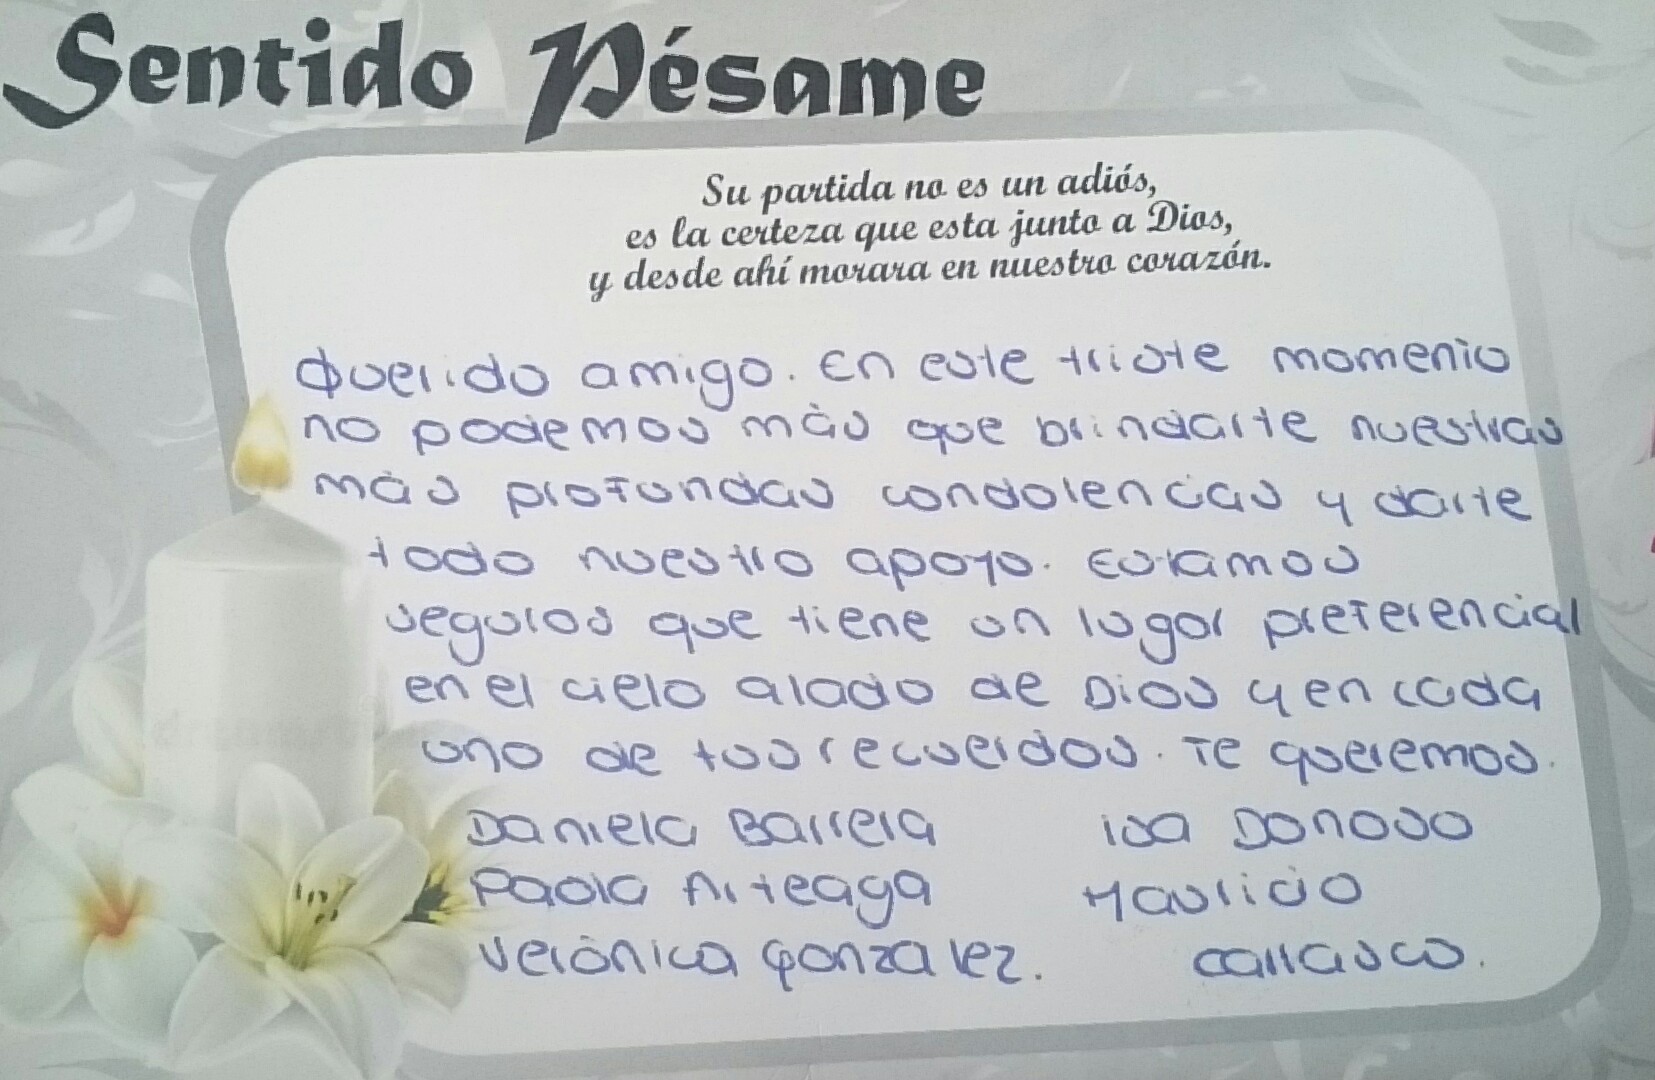 Sentido Pésame
Su partida no es un adiós,
es la certeza que esta junto a Dios,
y desde ahí morara en nuestro corazón.
Querido amigo. En este triste momento
no podemos más que brindarte nuestras
más profundas condolencias y darte
todo nuestro apoyo. Estamos
seguros que tiene un lugar preferencial
en el cielo alado de Dios y en cada
uno de tus recuerdos. Te queremos.
Daniela Barrera Isa Donoso
Paola Arteaga Mauricio
Verónica Gonzalez. Carrasco.